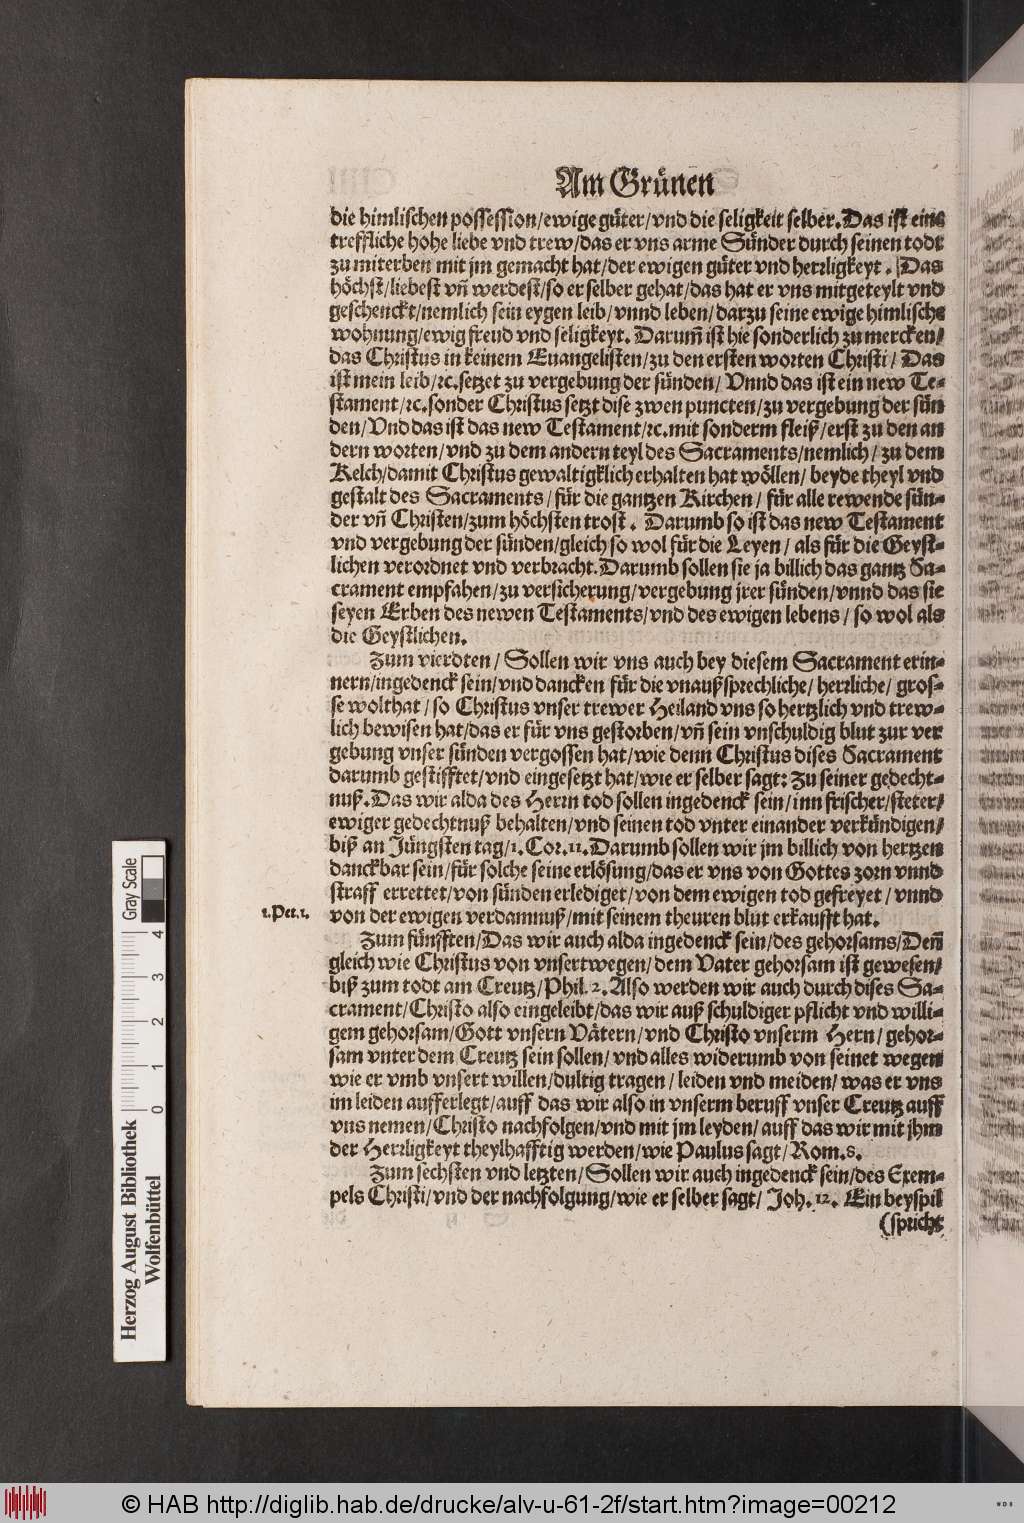 Am Grünen
die himlischen possession/ewige güter/vnd die seligkeit selber. Das ist eine
treffliche hohe liebe vnd trew/das er vns arme Sünder durch seinen todt
zu miterben mit jm gemacht hat/der ewigen güter vnd herrligkeyt. Das
höchst/liebest vñ werdest/so er selber gehat/das hat er vns mitgeteylt vnd
geschenckt/nemlich sein eygen leib/vnnd leben/darzu seine ewige himlische
wohnung/ewig freud vnd seligkeyt. Darum̃ ist hie sonderlich zu mercken/
das Christus in keinem Euangelisten/zu den ersten worten Christi/ Das
ist mein leib/ꝛc. setzet zu vergebung der sünden/ Vnnd das ist ein new Te-
stament/ꝛc. sonder Christus setzt dise zwen puncten/zu vergebung der sün
den/Vnd das ist das new Testament/ꝛc. mit sonderm fleiß/erst zu den an
dern worten/vnd zu dem andern teyl des Sacraments/nemlich/ zu dem
Kelch/damit Christus gewaltigklich erhalten hat wöllen/ beyde theyl vnd
gestalt des Sacraments/ für die gantzen Kirchen/ für alle rewende sün-
der vñ Christen/zum höchsten trost. Darumb so ist das new Testament
vnd vergebung der sünden/gleich so wol für die Leyen/ als für die Geyst-
lichen verordnet vnd verbracht. Darumb sollen sie ja billich das gantz Sa-
crament empfahen/zu versicherung/vergebung jrer sünden/vnnd das sie
seyen Erben des newen Testaments/vnd des ewigen lebens/ so wol als
die Geystlichen.
Zum vierdten/ Sollen wir vns auch bey diesem Sacrament erin-
nern/ingedenck sein/vnd dancken für die vnaußsprechliche/ herrliche/ gros-
se wolthat/ so Christus vnser trewer Heiland vns so hertzlich vnd trew-
lich bewisen hat/das er für vns gestorben/vñ sein vnschuldig blut zur ver
gebung vnser sünden vergossen hat/wie denn Christus dises Sacrament
darumb gestifftet/vnd eingesetzt hat/wie er selber sagt: Zu seiner gedecht-
nuß. Das wir alda des Herrn tod sollen ingedenck sein/inn frischer/steter/
ewiger gedechtnuß behalten/vnd seinen tod vnter einander verkündigen/
biß an Jüngsten tag/1. Cor. 11. Darumb sollen wir jm billich von hertzen
danckbar sein/für solche seine erlösung/das er vns von Gottes zorn vnnd
straff errettet/von sünden erlediget/von dem ewigen tod gefreyet/ vnnd
1. Pet. 1.
von der ewigen verdamnuß/mit seinem theuren blut erkaufft hat.
Zum fünfften/Das wir auch alda ingedenck sein/des gehorsams/Deñ
gleich wie Christus von vnsertwegen/dem Vater gehorsam ist gewesen/
biß zum todt am Creutz/Phil. 2. Also werden wir auch durch dises Sa-
crament/Christo also eingeleibt/das wir auß schuldiger pflicht vnd willi-
gem gehorsam/Gott vnsern Vätern/vnd Christo vnserm Hern/ gehor-
sam vnter dem Creutz sein sollen/ vnd alles widerumb von seinet wegen
wie er vmb vnsert willen/dultig tragen/ leiden vnd meiden/ was er vns
im leiden aufferlegt/auff das wir also in vnserm beruff vnser Creutz auff
vns nemen/Christo nachfolgen/vnd mit jm leyden/ auff das wir mit jhm
der Herrligkeyt theylhafftig werden/wie Paulus sagt/ Rom. 8.
Zum sechsten vnd letzten/ Sollen wir auch ingedenck sein/des Exem-
pels Christi/vnd der nachfolgung/wie er selber sagt/ Joh. 12. Ein beyspil
(spricht
Gray Scale
0 1 2 3 4
Herzog August Bibliothek
Wolfenbüttel
© HAB http://diglib.hab.de/drucke/alv-u-61-2f/start.htm?image=00212
WDB